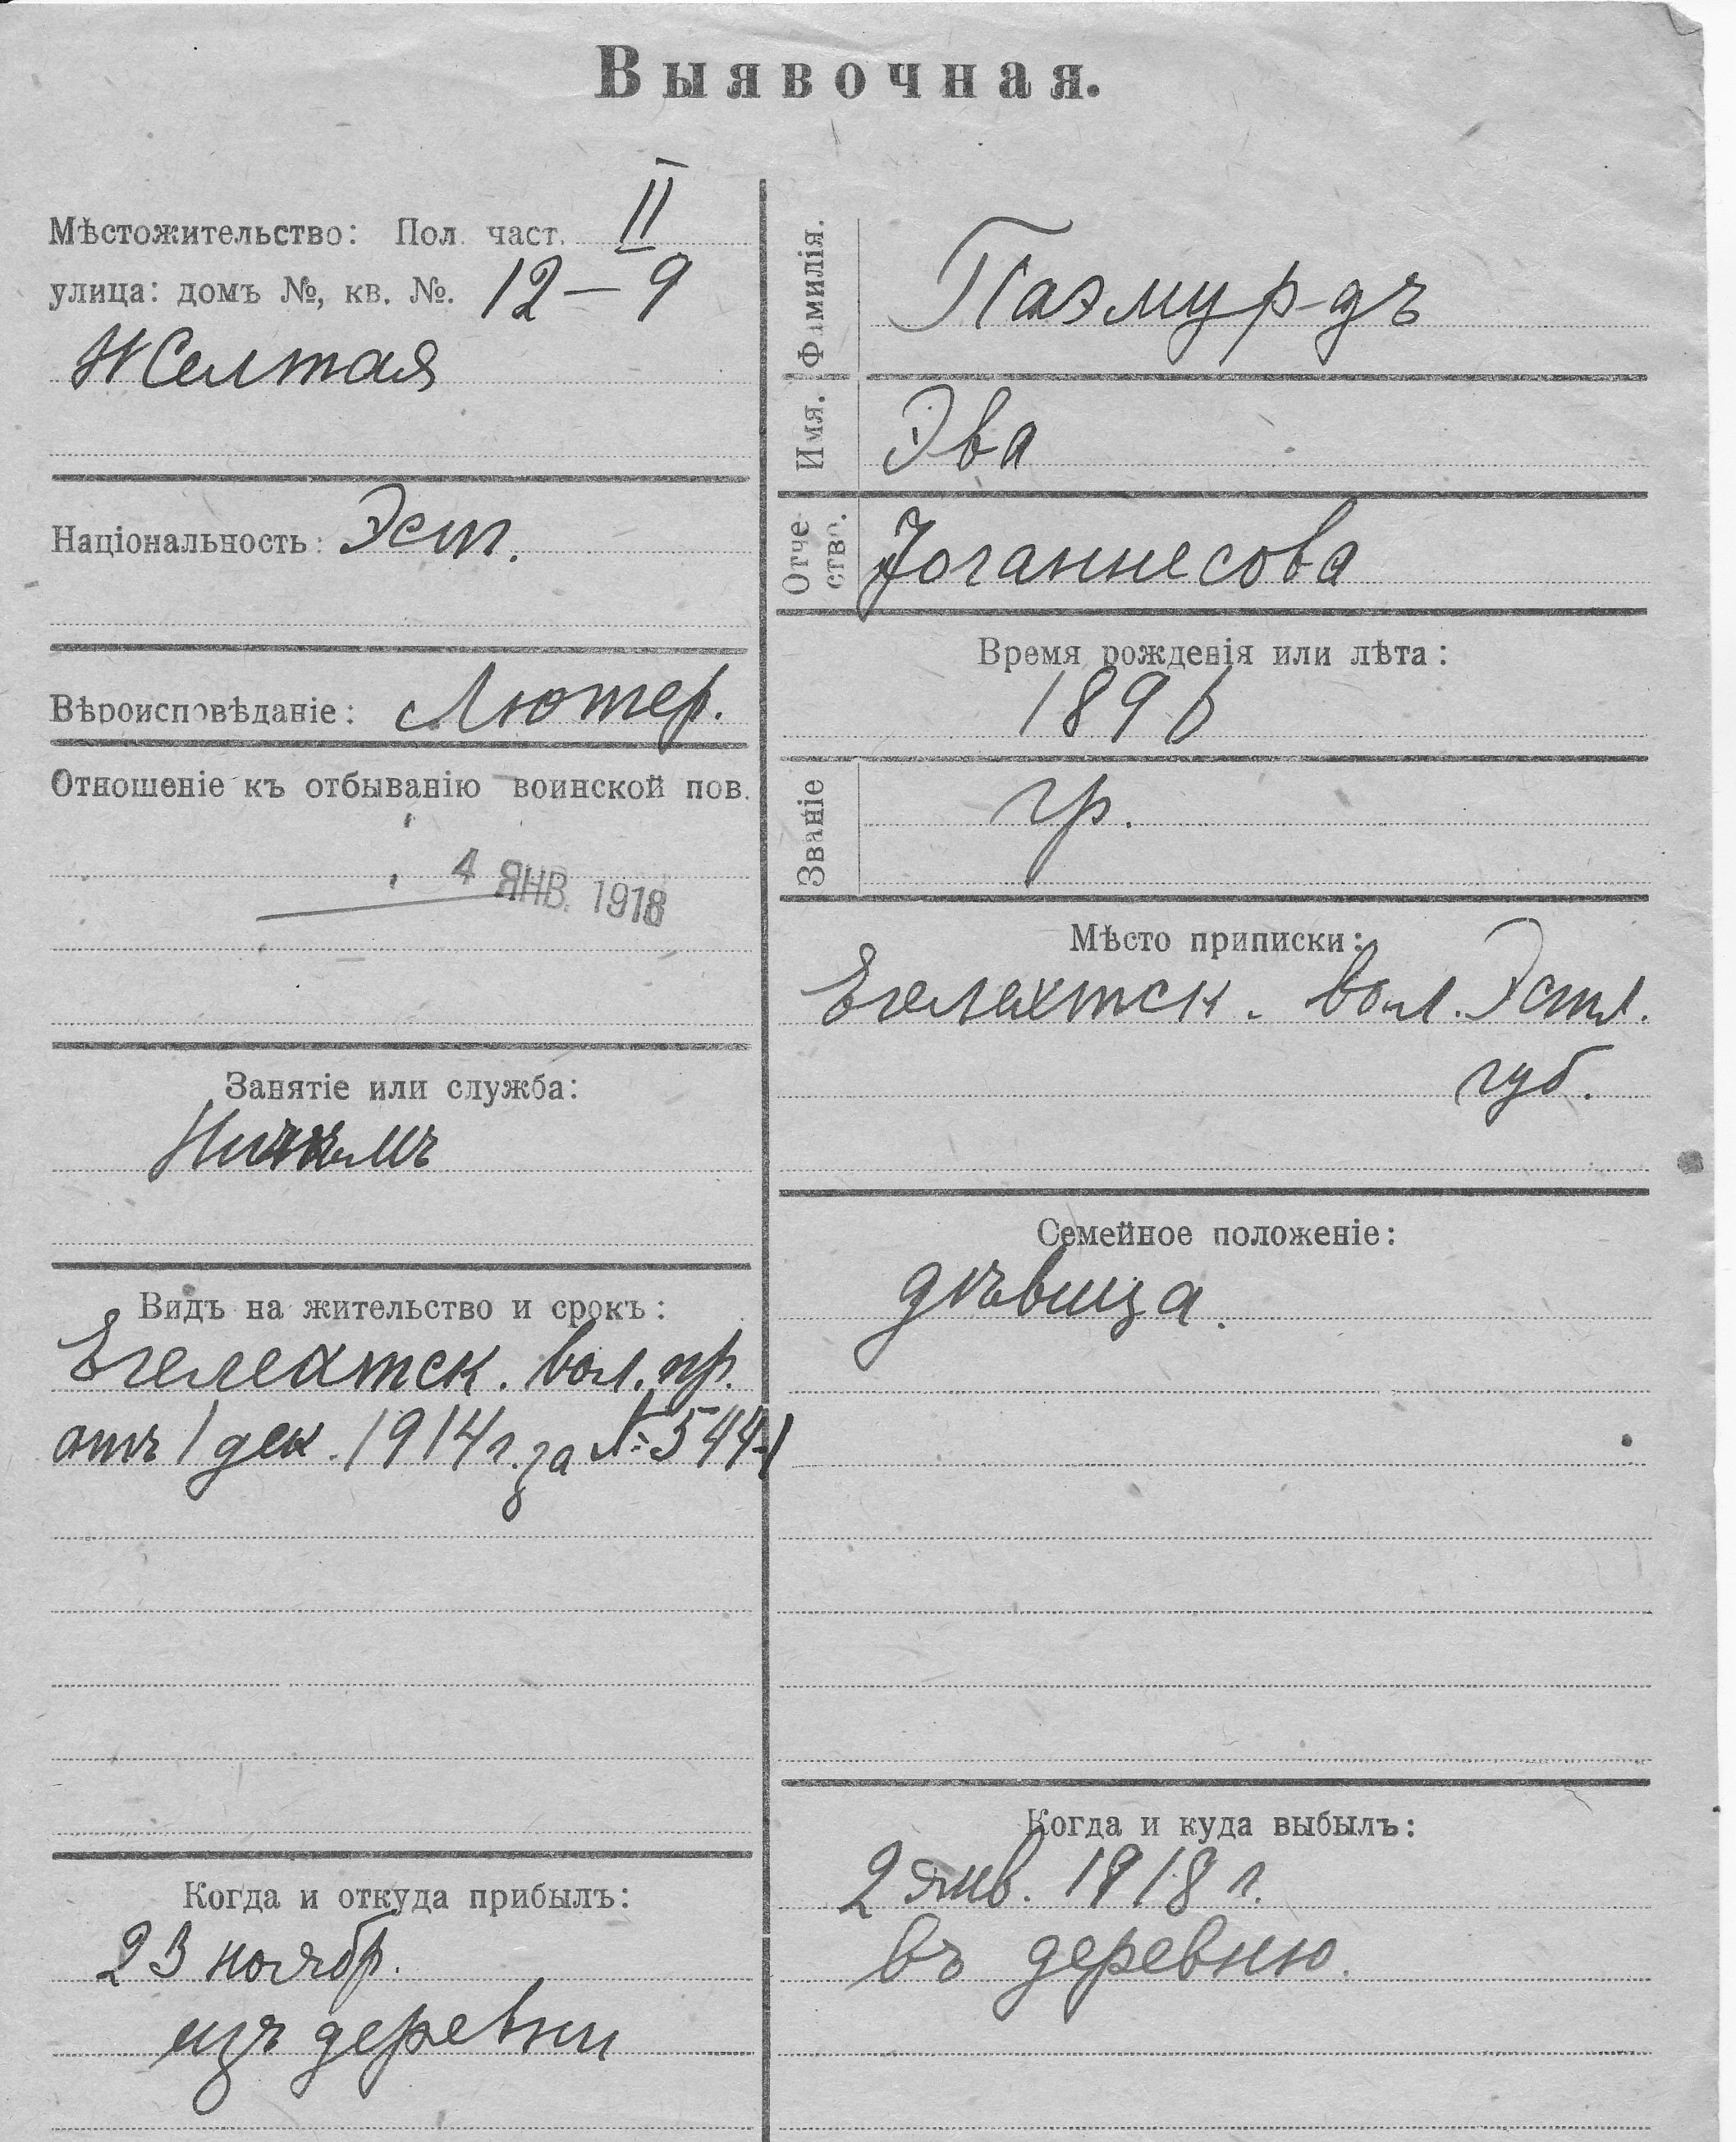 Выявочная.
Мѣстожительство: Пол. част. II
улица: домъ №, кв. №. 12 – 9
Желтая
Національность: Эст.
Вѣроисповѣданіе: Лютер.
Отношеніе къ отбыванію воинской пов.
4 ЯНВ. 1918
Занятіе или служба:
Видъ на жительство и срокъ:
Егелехтск. вол. пр.
отъ 1 дек. 1914 г. за №
Когда и откуда прибылъ:
23 ноябр.
изъ деревни
Фамилія. Паэмурдъ
Имя. Эва
Отче
ство. Іоганнесова
Время рожденія или лѣта:
1896
Званіе гр.
Мѣсто приписки:
Егелехтск. вол. Эстл.
губ.
Семейное положеніе:
дѣвица.
Когда и куда выбылъ:
2 янв. 1918 г.
въ деревню.